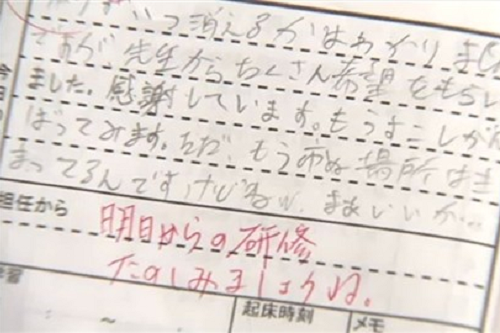 いつ消えるかはわかりません
ですが、先生からたくさん希望をもらい
ました。感謝しています。もうすこしがん
ばってみます。ただ、もう市ぬ場所はき
まってるんですけどねw。まあいいか…
今日の
担任から
明日からの研修
たのしみましょうね。
学習
~
~
起床時刻
メモ